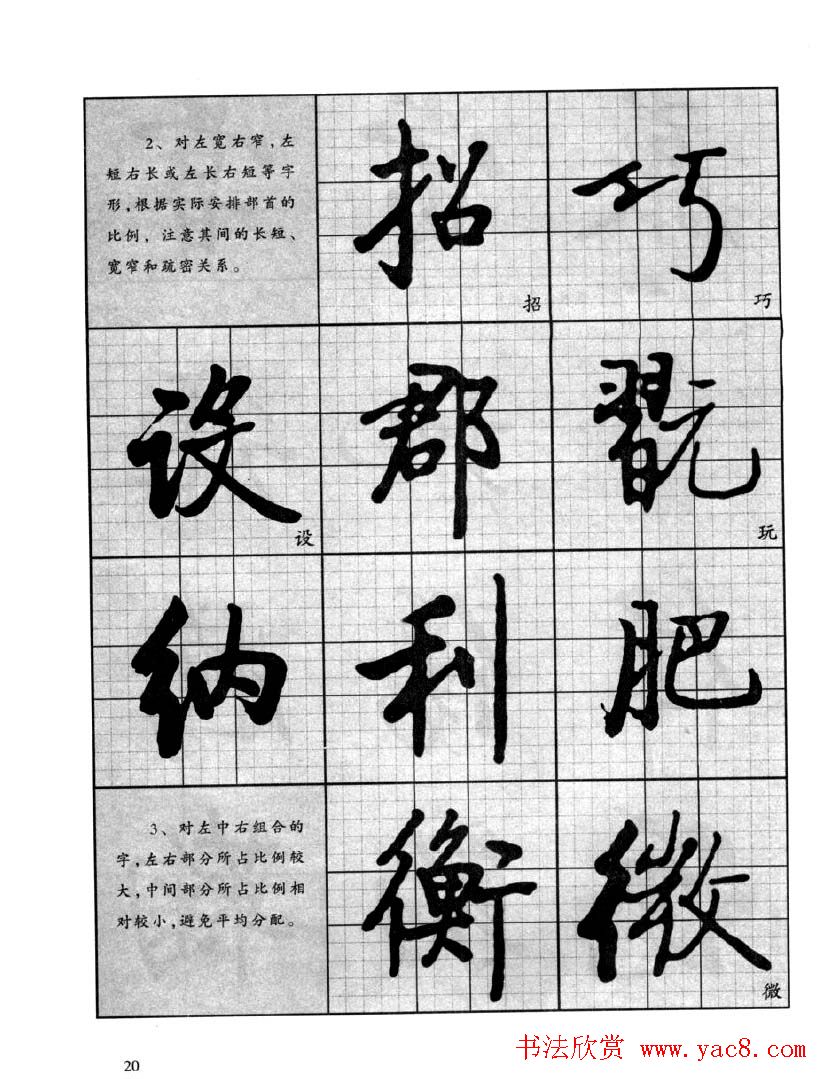 2、对左宽右窄,左
短右长或左长右短等字
形,根据实际安排部首的
比例,注意其间的长短、
宽窄和疏密关系。
招 巧
招 巧
设 郡 翫
设 玩
纳 利 肥
3、对左中右组合的
字,左右部分所占比例较
大,中间部分所占比例相
对较小,避免平均分配。
衡 微
微
20
书法欣赏 www.yac8.com